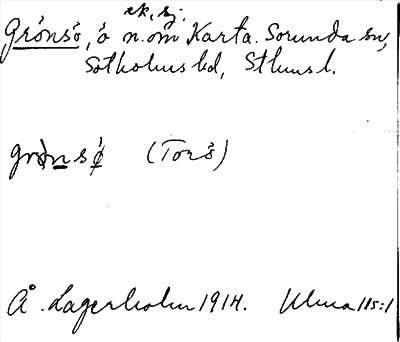 sk, sj.
Grönsö, ö n. om Karta. Sorunda sn,
Sotholms hd, Sthms l.
grònsø (Torö)
Å. Lagerholm 1914. Ulma 115:1